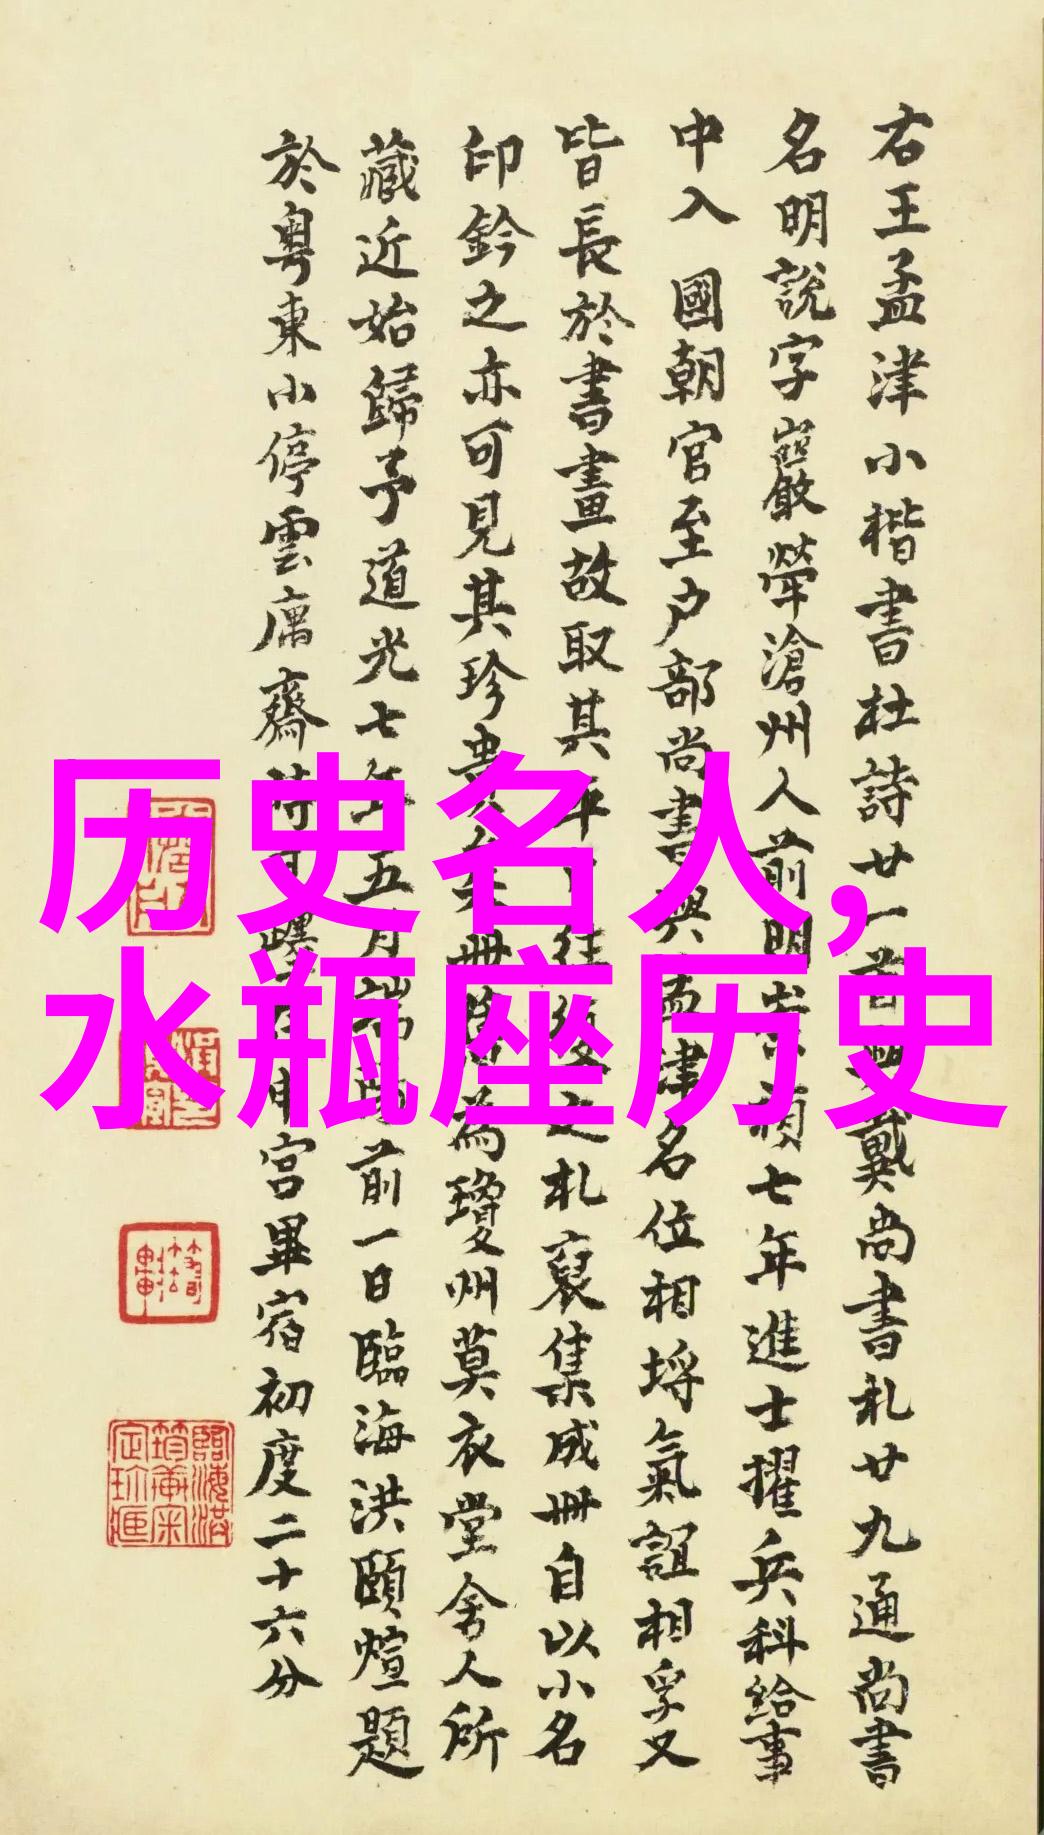 历史名人,
水瓶座历史
右王孟津小楷書杜詩廿一首戴尚書札廿九通尚書
名明說字巖犖滄州人前明崇禎七年進士擢兵科給事
中入國朝官至户部尚書與孟津名位相埒氣誼相孚又
皆長於書畫故取其平往之札裒集成冊自以小名
印鈐之亦可見其珍貴冊為瓊州莫衣堂舍人所
藏近始歸予道光七年五月端前一日臨海洪頤煊題
於粵東小停雲庽齋時日躔月宮畢宿初度二十六分